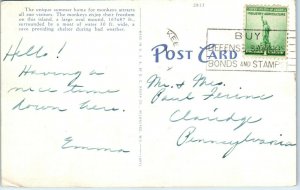 The unique summer home for monkeys attracts
all our visitors. The monkeys enjoy their freedom
on this island, a large oval mound,
surrounded by a moat of water 10 ft. wide, a
cave providing shelter during bad weather.
Hello!
Having a
nice time
down here.
Emma
POST CARD
BUY
DEFENSE
BONDS AND STAMPS
Mr. & Mrs.
Paul Ferinc
Claridge
Pennsylvania